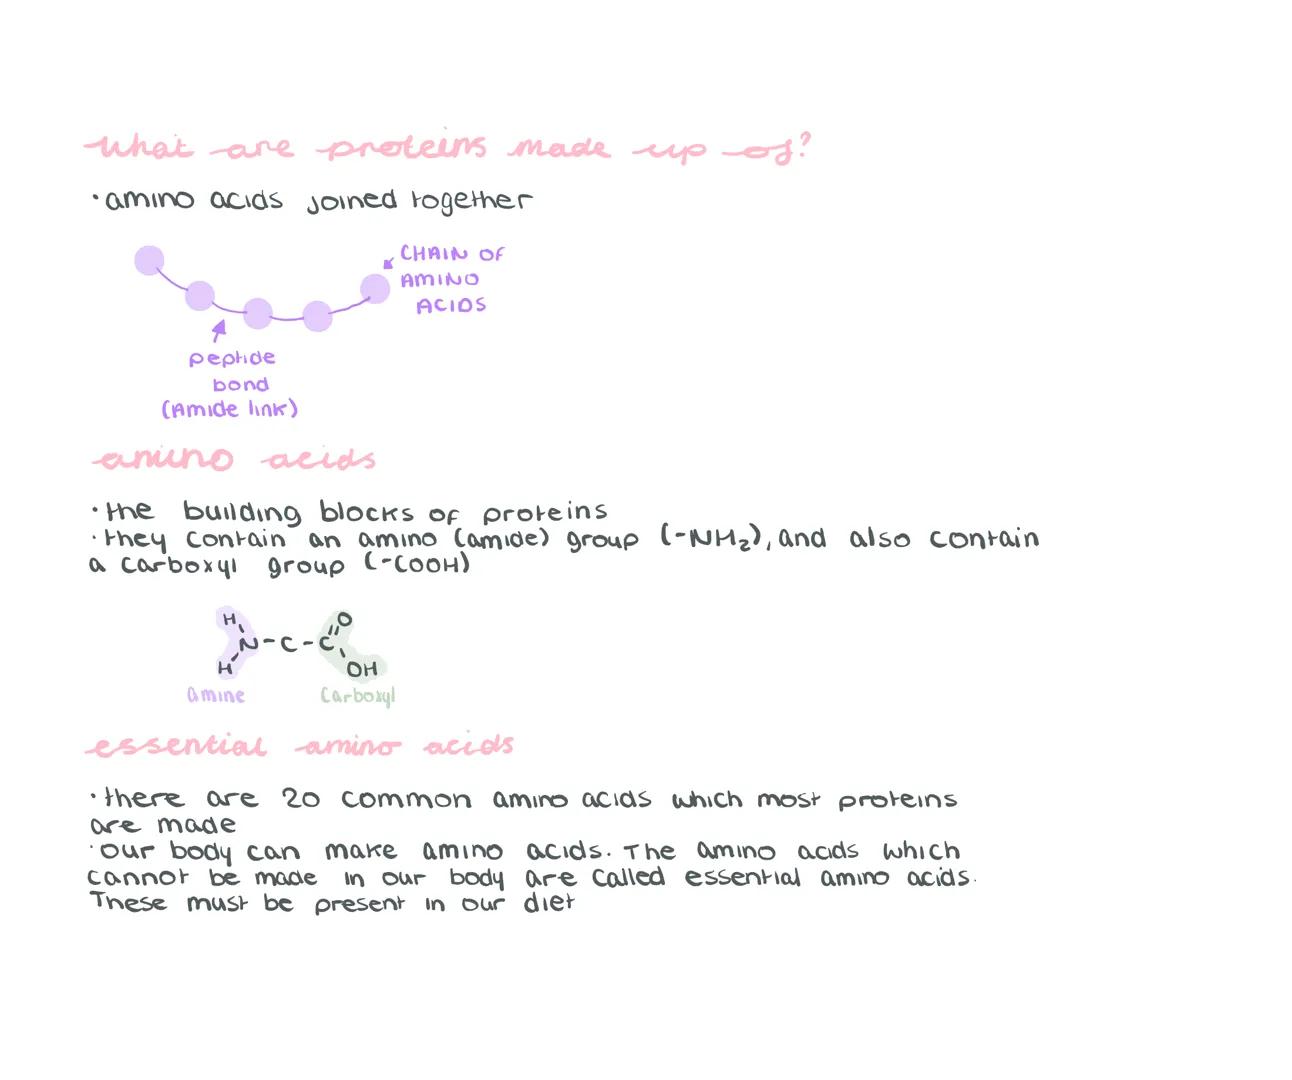 what are proteins made up of?
• amino acids joined together
CHAIN OF
AMINO
ACIDS
peptide
bond
(Amide link)
amino acids
• the building blocks of proteins
• they contain an amino (amide) group (-NH₂), and also contain
a carboxyl group (-COOH)
H O
N - C - C
H OH
amine Carboxyl
essential amino acids
• there are 20 common amino acids which most proteins
are made
• our body can make amino acids. The amino acids which
cannot be made in our body are called essential amino acids.
These must be present in our diet